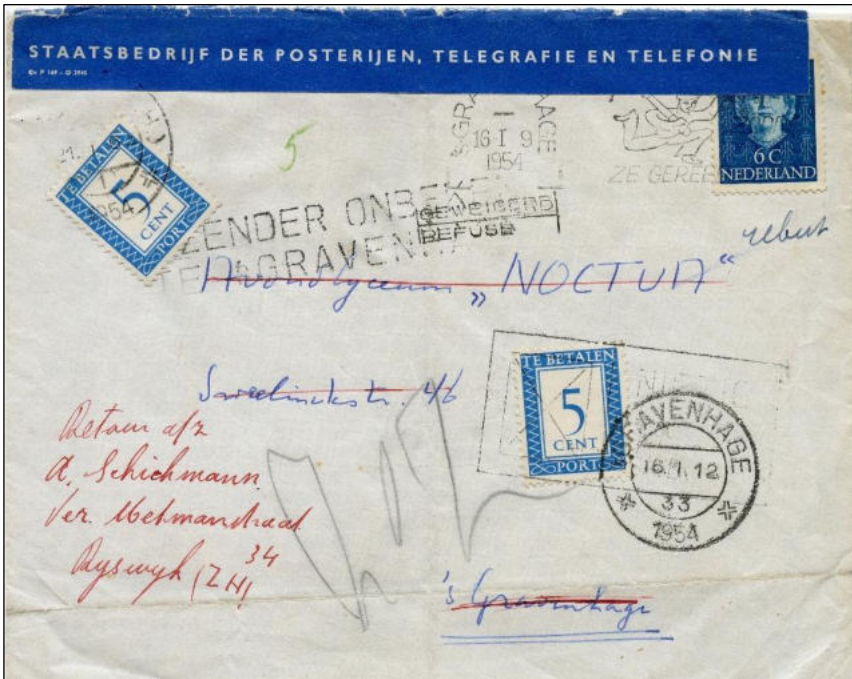 STAATSBEDRIJF DER POSTERIJEN, TELEGRAFIE EN TELEFONIE
5
'S GRAVENHAGE
16 I 9
1954
ZE GEREE
6 C
NEDERLAND
TE BETALEN
5
CENT
PORT
1954
ZENDER ONBE
TE GRAVENHA
GEWEIGERD
REFUSÉ
rebut
Avondlyceum „NOCTUA“
Sweelinckstr. 46
TE BETALEN
5
CENT
PORT
GRAVENHAGE
16.I.12
33
1954
Retour afz
A. Schichmann
Ryswyk (ZH)
34
's Gravenhage